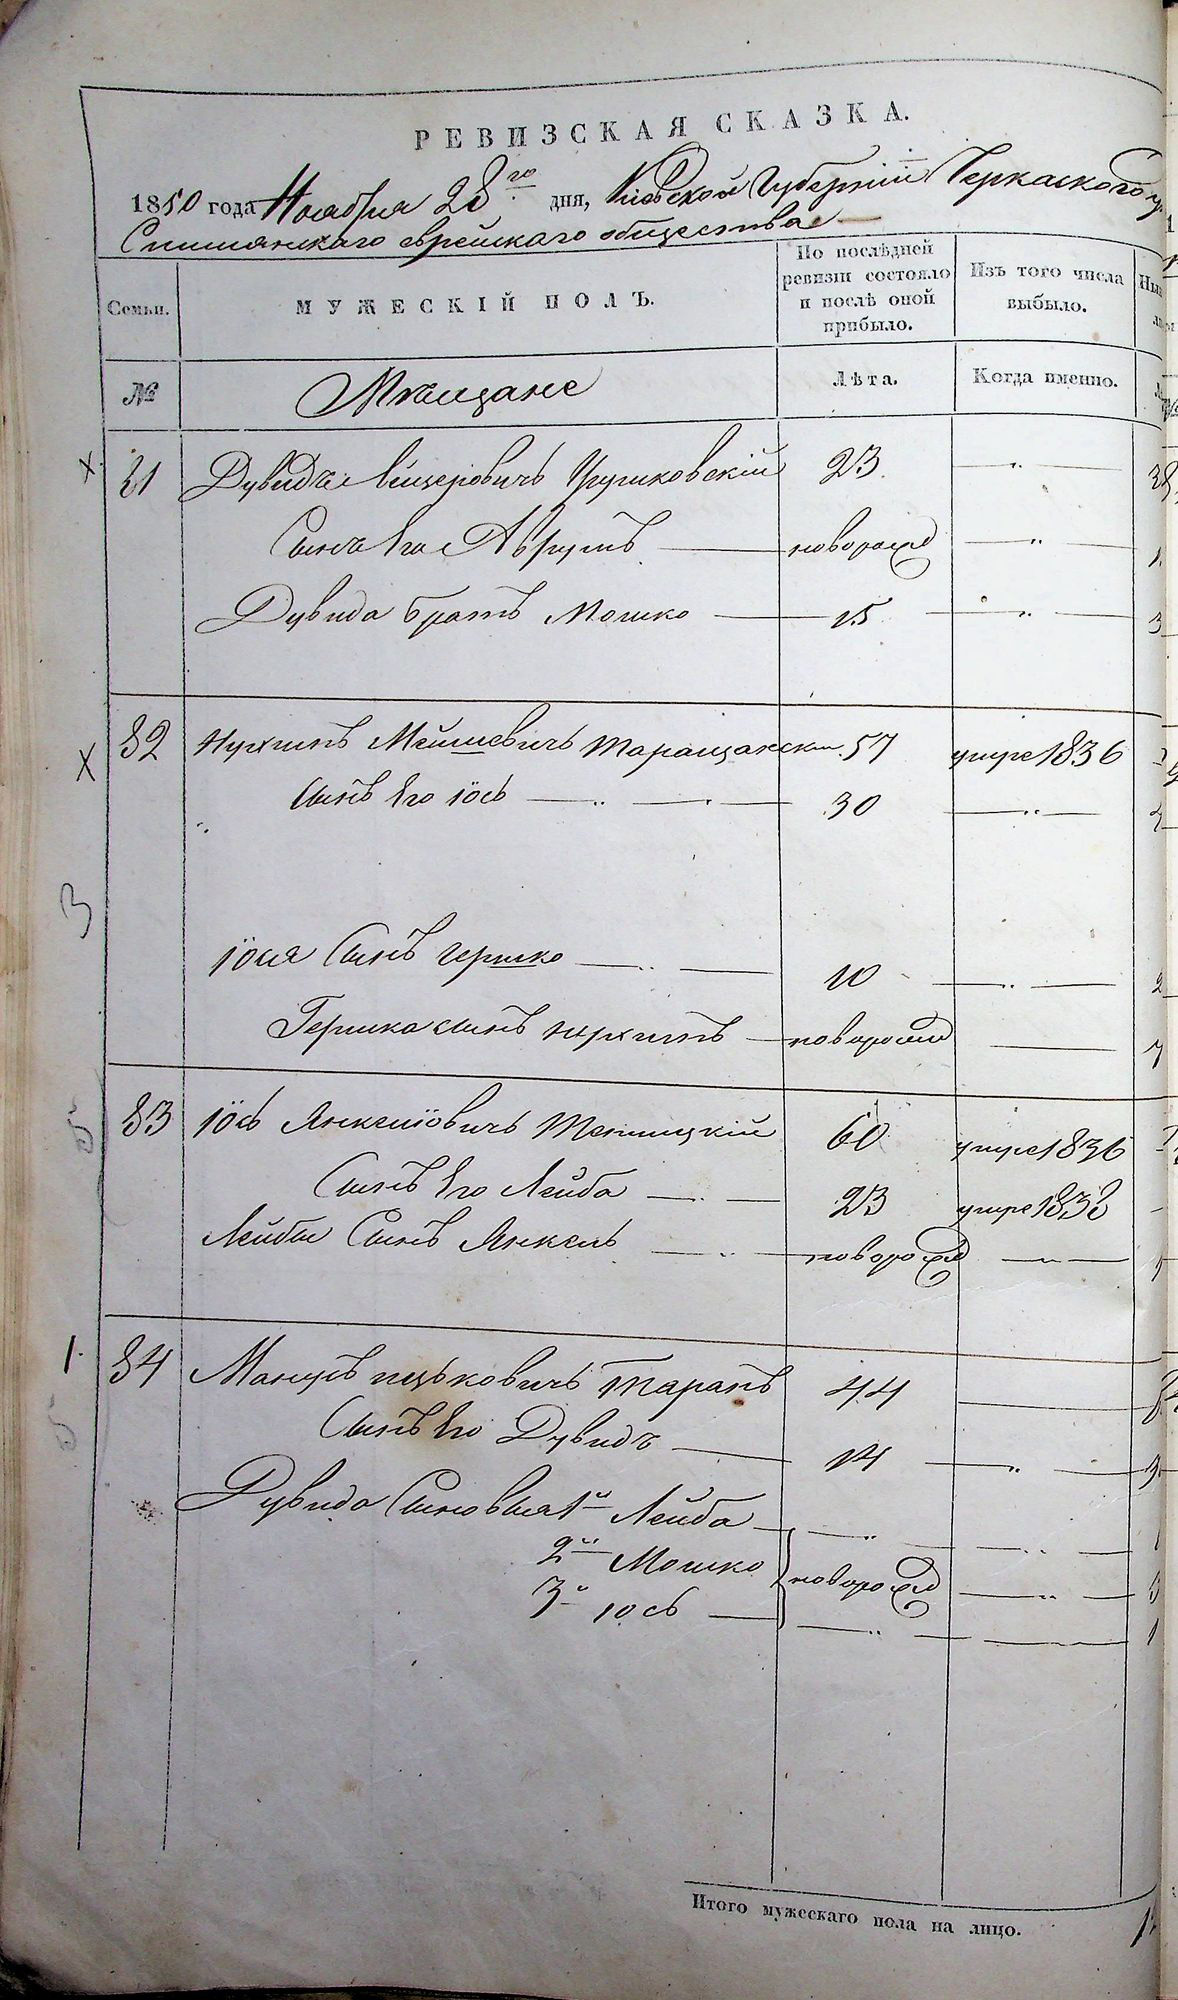 РЕВИЗСКАЯ СКАЗКА.
1850 года Ноября 28го дня, Кіевской Губерніи Черкаского
еврейскаго общества
Семьи. МУЖЕСКІЙ ПОЛЪ. По послѣдней ревизіи состояло и послѣ оной прибыло. Изъ того числа выбыло.
№ Мѣщане Лѣта. Когда именно.
X 81 Дувидъ 23 — " —
Сынъ Его Аврумъ — новорожд — " —
Дувида братъ Мошко — 15 — " —
X 82 Нухимъ Таращанскій 57 умре 1836
Сынъ Его Іось — " — 30 — " —
3
Іося Сынъ Гершко — " — 10 — " —
Гершка сынъ Нухимъ — новорожд —
83 Іось Янкелiовичъ 60 умре 1836
Сынъ Его Лейба — " — 23 умре 1838
Лейбы Сынъ Янкель — " — новорожд — " —
1. 84 Ицьковичъ Таранъ 44 —
Сынъ Его Дувидъ — 14 — " —
Дувида Сыновья 1й Лейба — " — — " —
2й Мошко новорожд — " —
3й Іось — — " — —
Итого мужескаго пола на лицо.